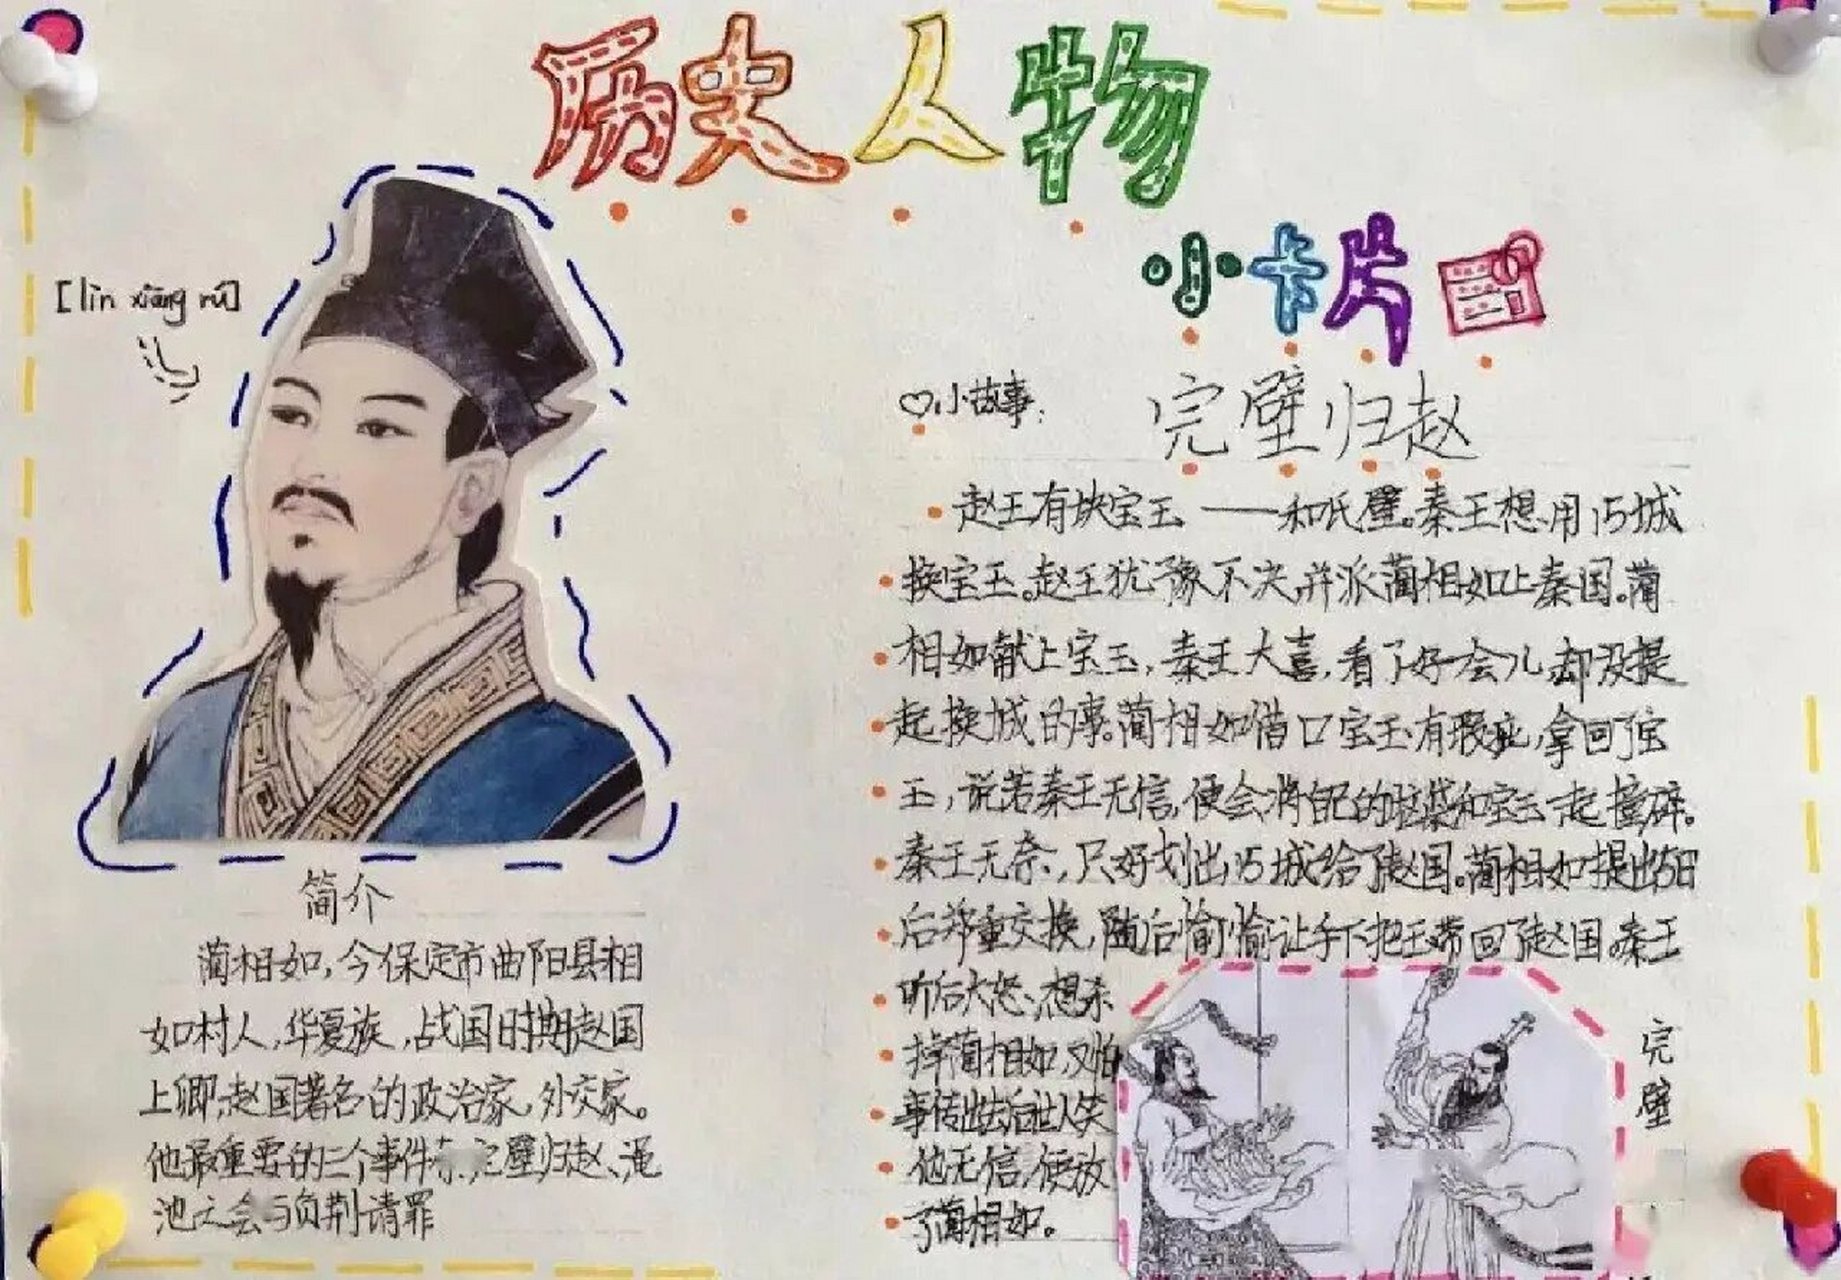 历史人物
小卡片
[lìn xiāng rú]
♡小故事:
完璧归赵
赵王有块宝玉——和氏璧。秦王想用15城
换宝玉。赵王犹豫不决,并派蔺相如上秦国。蔺
相如献上宝玉,秦王大喜,看了好一会儿,却没提
起换城的事。蔺相如借口宝玉有瑕疵,拿回了宝
玉,说若秦王无信,便会将自己的脑袋和宝玉一起撞碎。
秦王无奈,只好划出15城给了赵国。蔺相如提出5日
后郑重交换,随后偷偷让手下把玉带回了赵国。秦王
听后大怒,想杀
掉蔺相如,又怕
事传出去后世人笑
他无信,便放
了蔺相如。
完璧
简介
蔺相如,今保定市曲阳县相
如村人,华夏族,战国时期赵国
上卿,赵国著名的政治家,外交家。
他最重要的三个事件有完璧归赵、渑
池之会与负荆请罪